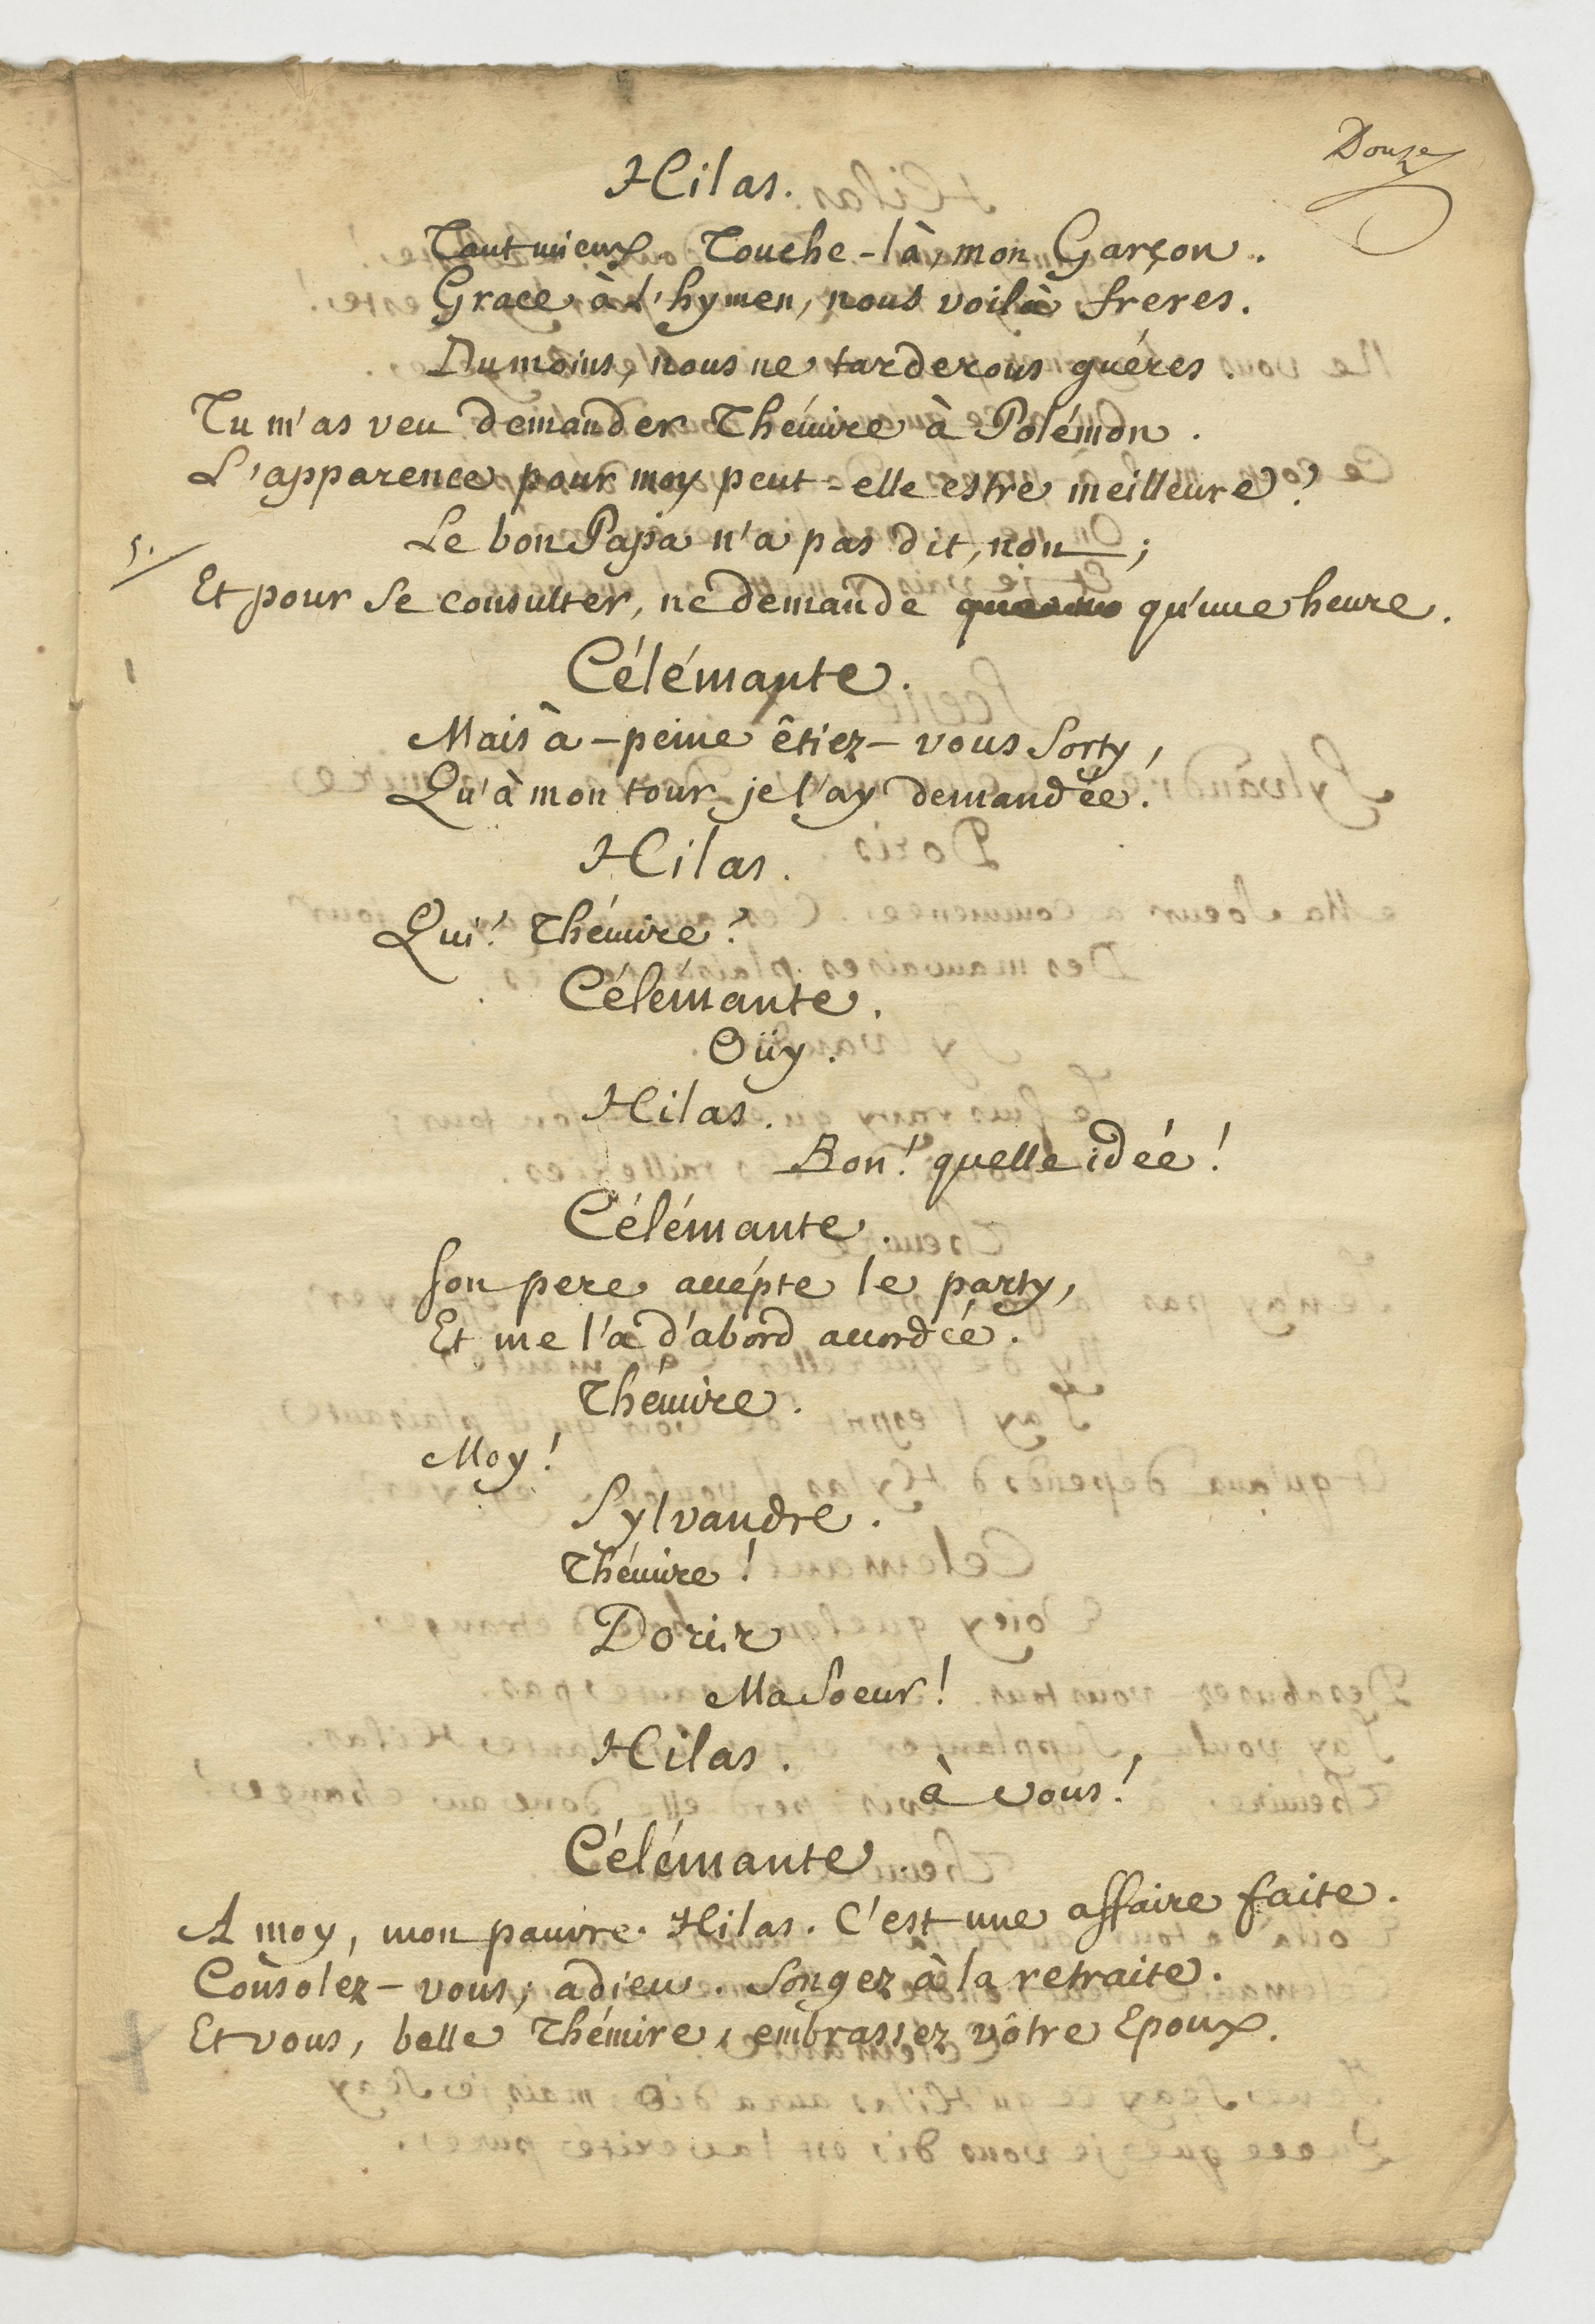 Douze
Hilas.
Tant mieux. Touche-là, mon Garçon.
Grace à L'hymen, nous voilà freres.
Du moins, nous ne tarderons guéres.
Tu m'as veu demander Thémire à Polémon.
L'apparence pour moy peut-elle estre meilleure?
Le bon Papa n'a pas dit, non;
Et pour se consulter, ne demande qu'une heure.
Célémante.
Mais à-peine êtiez-vous Sorty,
Qu'à mon tour, je l'ay demandée.
Hilas.
Qui? Thémire?
Célémante.
Oüy.
Hilas.
Bon! quelle idée!
Célémante.
Son pere accépte le party,
Et me l'a d'abord accordée.
Thémire.
Moy!
Sylvandre.
Thémire!
Doris
Ma Soeur!
Hilas.
à vous!
Célémante.
A moy, mon pauvre Hilas. C'est une affaire faite.
Consolez-vous; adieu. Songez à la retraite.
Et vous, belle Thémire, embrassez vôtre Epoux.